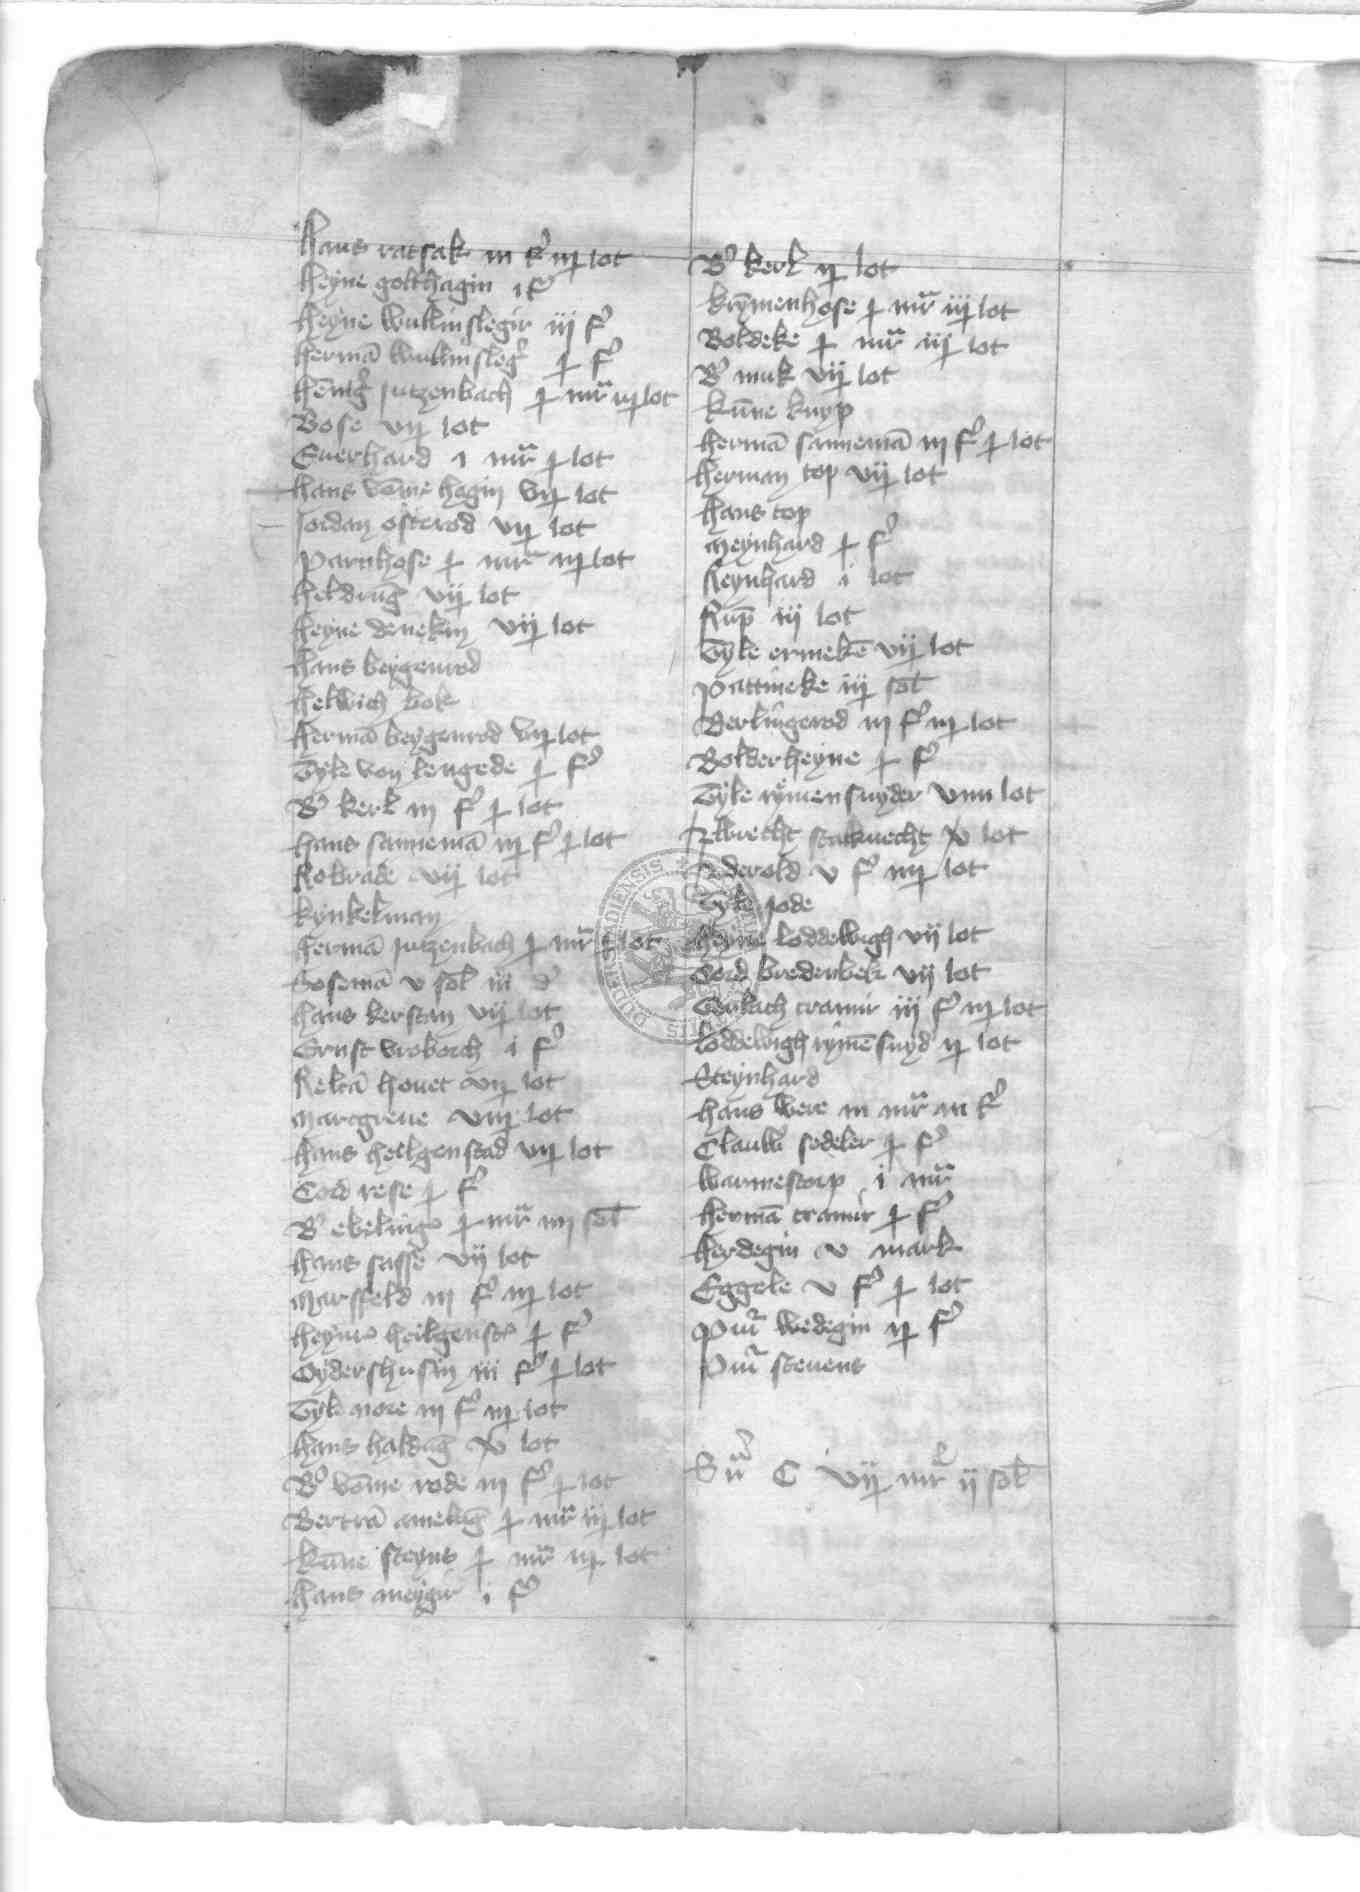 Hans ratsak iii f' iij lot
Heyne golthagin i f'
Heyne wullinslegir iij f'
Hermā wullinsleg' j f'
Henīg' jutzenbach j mr iij lot
Bose vij lot
Everhard i mr j lot
Hans vōme hagin vij lot
Jordan osterod vij lot
Parnhose j mr iij lot
Heldrūg vij lot
Heyne denekin vij lot
Hans beygenrod
Helwich bok
Hermā beygenrod vij lot
Tyle von lengede j f'
B' kerl iij f' j lot
Hans sannemā iij f' j lot
Kobrade vij lot
Kynkelman
Hermā jutzenbach j mr j lot
Bosemā v sol iij d'
Hans kerstan vij lot
Ernst vroborch i f'
hovet vij lot
Marcgreve viij lot
Hans heilgenstad vij lot
Cord rese j f'
B' ebeling j mr iij sol
Hans sasse vij lot
Marsfeld iij f' iij lot
Heyne heilgenst' j f'
Gydershusin iij f' j lot
Tyle nore iij f' iij lot
Hans haldūg xv lot
B' vōme rode iij f' j lot
Bertrā amelūg j mr iij lot
Kūne steyns j mr iij lot
Hans meygir i f'
B' kerl ij lot
Krymenhose j mr iij lot
Boldeke j mr iij lot
B' muk vij lot
Kūne knyp
Hermā sannemā iij f' j lot
Herman top vij lot
Hans top
Meynhard j f'
Reynhard i lot
Rup iij lot
Tyle ermekē vij lot
Pattineke iij sol
Berlingerod iij f' iij lot
Bolderheyne j f'
Tyle rymensnyder viiii lot
stacknecht xv lot
v f' iiij lot
Tyle jode
Heyne loddewigh vij lot
Cord bredenbek vij lot
Gerlach cramir iij f' iij lot
Loddewigh rymēsnyd ij lot
Steynhard
Hans were iii mr iii f'
Clauw' sedeler j f'
Warmestorp i mr
Hermā cramir j f'
Herdegin v mark
Eggele v f' j lot
wedegin ij f'
stevens
Sū C vij mr ij sol